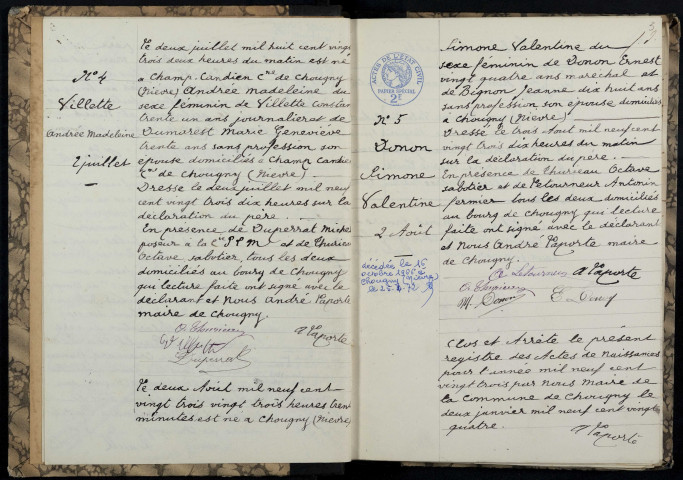 N° 4
Villette
Andrée Madeleine
2 juillet
Le deux juillet mil huit cent vingt
trois deux heures du matin est né
a Champ-Candien Cne de Chougny
(Nièvre) Andrée Madeleine du
sexe féminin de Villette
trente un ans journalier et de
Dumarest Marie Geneviève
trente ans sans profession son
épouse domiciliés a Champ Candien
Cne de Chougny (Nièvre)
Dressé le deux juillet mil neuf
cent vingt trois dix heures sur la
déclaration du père.
En présence de Duperrat
poseur à la Cie P.L.M et de Thuriau
Octave sabotier, tous les deux
domiciliés au bourg de Chougny
qui lecture faite ont signé avec le
déclarant et Nous André Laporte
maire de Chougny.
A Laporte
Duperrat
Le deux Aout mil neuf cent
vingt trois vingt trois heures trente
minutes est né a Chougny (Nièvre)
ACTES DE L'ETAT CIVIL
PAPIER SPECIAL
2F
N° 5
Donon
Simone
Valentine
2 Août
décédée le 16
octobre
Chougny (Nièvre)
Simone Valentine du
sexe féminin de Donon Ernest
vingt quatre ans maréchal et
de Bignon Jeanne dix huit ans
sans profession son épouse domiciliés
à Chougny (Nièvre)
Dressé le trois Aout mil neuf cent
vingt trois dix heures du matin
sur la déclaration du père.
En présence de Thuriau Octave
sabotier et de Letourneur Antonin
fermier tous les deux domiciliés
au bourg de Chougny qui lecture
faite ont signé avec le déclarant
et Nous André Laporte maire
de Chougny.
A Letourneur A Laporte
Clos et Arrêté le présent
registre des Actes de Naissances
pour l'année mil neuf cent
vingt trois par nous Maire de
la Commune de Chougny le
deux janvier mil neuf cent vingt
quatre.
A Laporte